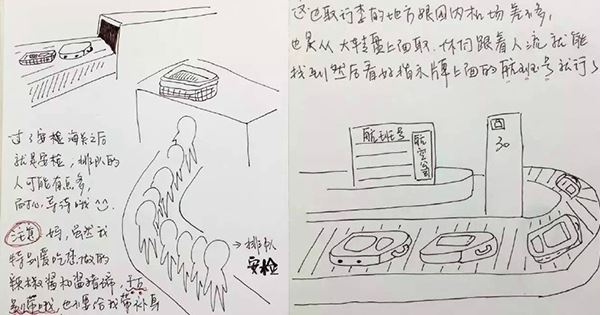 过了安检海关之后
就是安检，排队的
人可能有点多，
耐心等待哦
注意 妈，虽然我
特别爱吃您做的
辣椒酱和酱猪蹄，千万
别带哦，也不要给我带补身
→排队
安检
这边取行李的地方跟国内机场差不多，
也是从大转盘上面取，你们跟着人流就能
找到然后看好指示牌上面的航班号就行了
航班号
航空公司
30